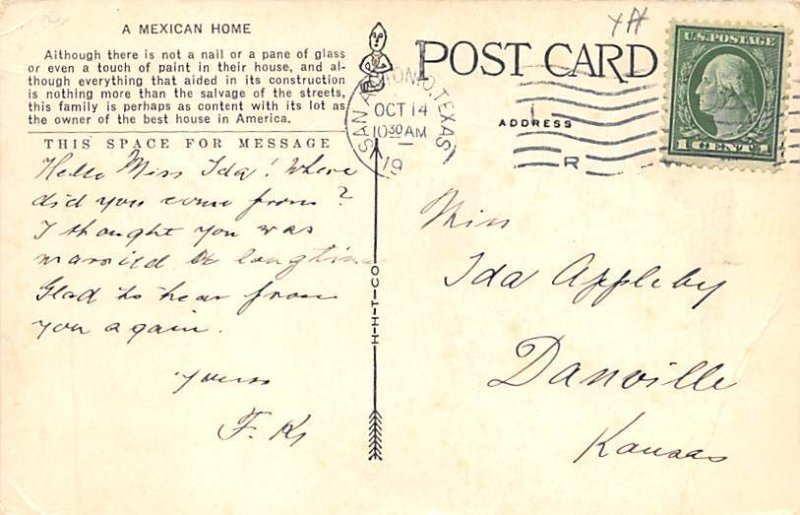 A MEXICAN HOME
Although there is not a nail or a pane of glass
or even a touch of paint in their house, and al-
though everything that aided in its construction
is nothing more than the salvage of the streets,
this family is perhaps as content with its lot as
the owner of the best house in America.
THIS SPACE FOR MESSAGE
Hello Miss Ida! Where
did you come from?
I thought you was
married a longtime
Glad to hear from
you again.
yours
F. K.
H-H-T-CO
POST CARD
ADDRESS
SAN ANTONIO, TEXAS
OCT 14
10 30 AM
19
R
U.S. POSTAGE
1 CENT 1
Miss
Ida Appleby
Danville
Kansas